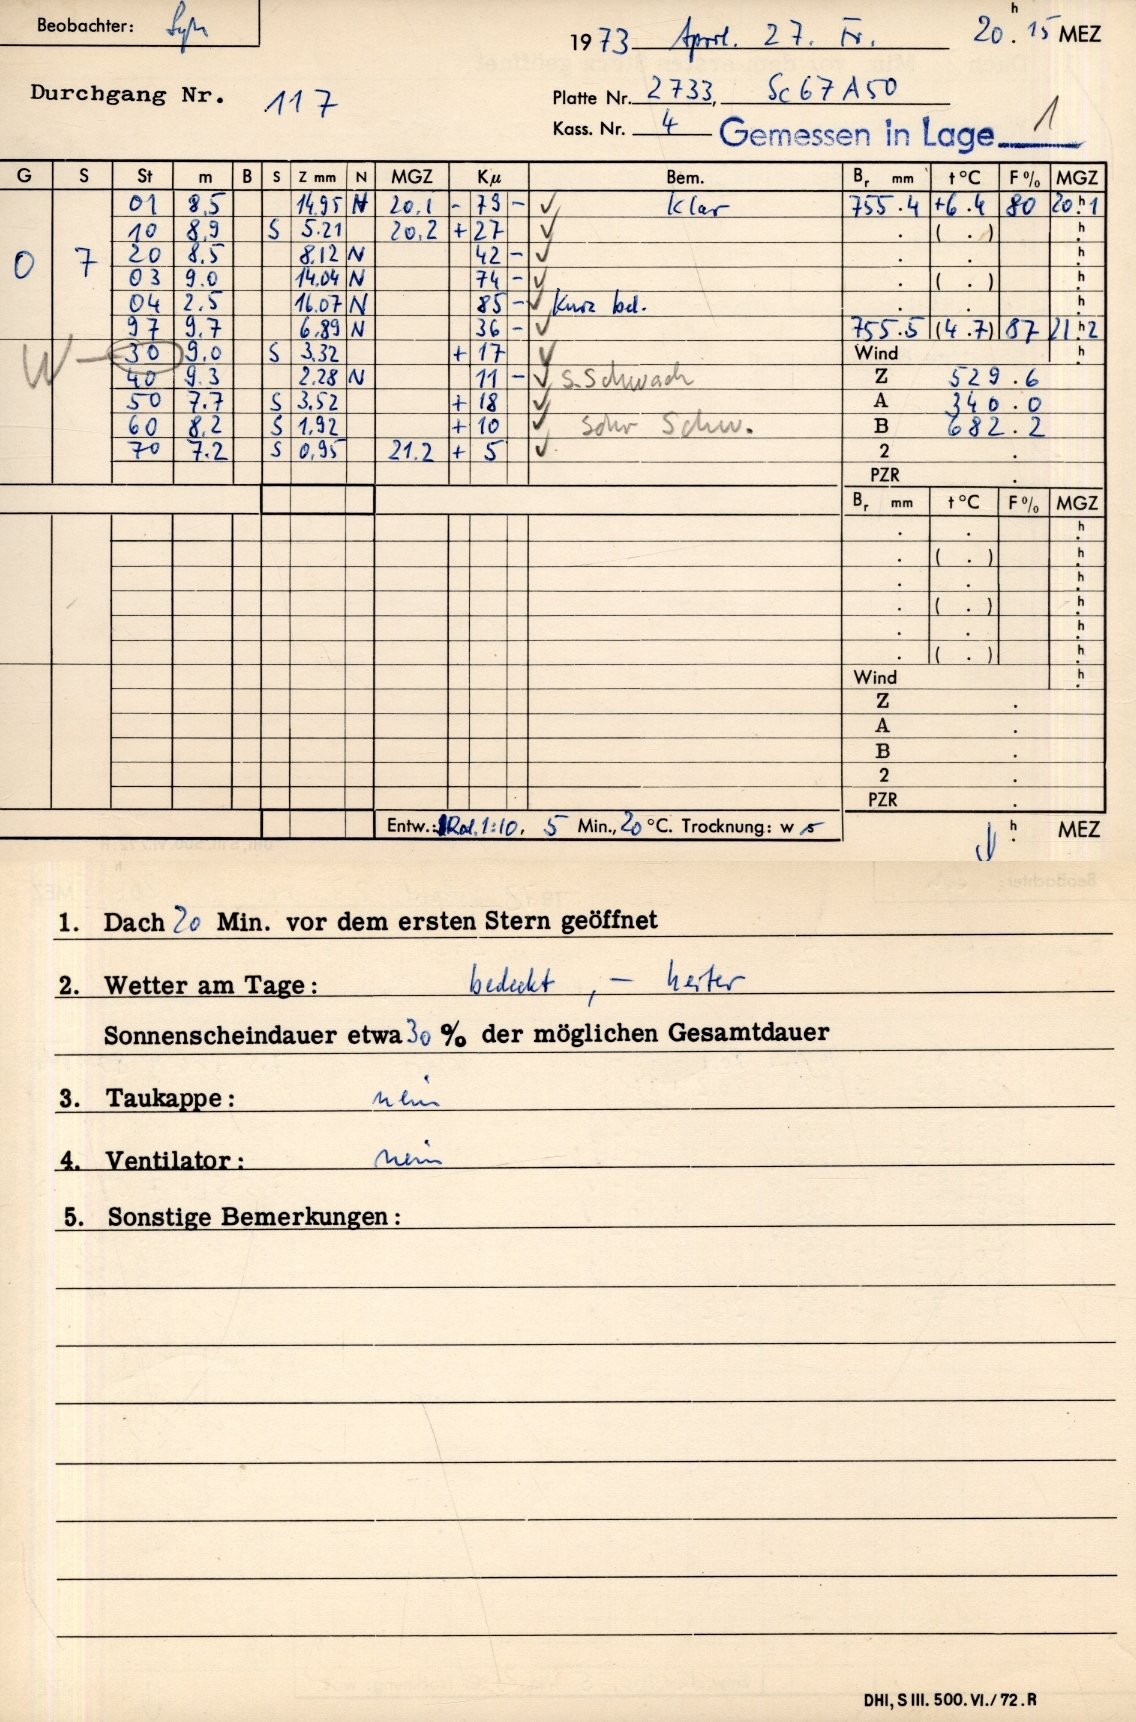 Beobachter:
1973 April. 27. Fr. 20.h 15 MEZ
Durchgang Nr. 117
Platte Nr. 2733, Sc67A50
Kass. Nr. 4 Gemessen in Lage 1
G S St m B S Z mm N MGZ Kµ Bem. Br mm t °C F % MGZ
01 8.5 14.95 N 20.1 - 79 - ✓ Klar 755.4 +6.4 80 20.h1
10 8.9 S 5.21 20.2 + 27 ✓ . ( . ) h.
0 7 20 8.5 8.12 N 42 - ✓ . . h.
03 9.0 14.04 N 74 - ✓ ( . ) h.
04 2.5 16.07 N 85 - ✓ Kurz bel. . . h.
97 9.7 6.89 N 36 - ✓ 755.5 (4.7) 87 21.h2
W 30 9.0 S 3.32 + 17 ✓ Wind h.
40 9.3 2.28 N 11 - ✓ s. Schwach Z 529.6
50 7.7 S 3.52 + 18 ✓ A 340.0
60 8.2 S 1.92 + 10 ✓ Sehr Schw. B 682.2
70 7.2 S 0.95 21.2 + 5 ✓ 2 .
PZR .
Br mm t °C F % MGZ
. . h.
. ( . ) h.
. . h.
. ( . ) h.
. . h.
. ( . ) h.
Wind h.
Z .
A .
B .
2 .
PZR .
Entw.: Rod. 1:10, 5 Min., 20 °C. Trocknung: w h. MEZ
1. Dach 20 Min. vor dem ersten Stern geöffnet
2. Wetter am Tage: bedeckt, – heiter
Sonnenscheindauer etwa 30 % der möglichen Gesamtdauer
3. Taukappe: nein
4. Ventilator: nein
5. Sonstige Bemerkungen:
DHI, S III. 500. VI./72. R